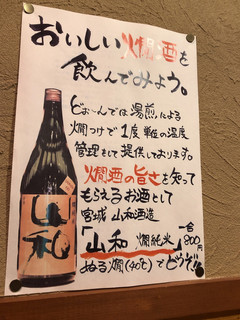 おいしい燗酒を
飲んでみよう。
どぉ〜んでは湯煎による
燗つけで1度単位の温度
管理をして提供しております。
燗酒の旨さを知って
もらえるお酒として
宮城 山和酒造
「山和 燗純米」一合800円
ぬる燗(40℃)でどうぞ!!
山和